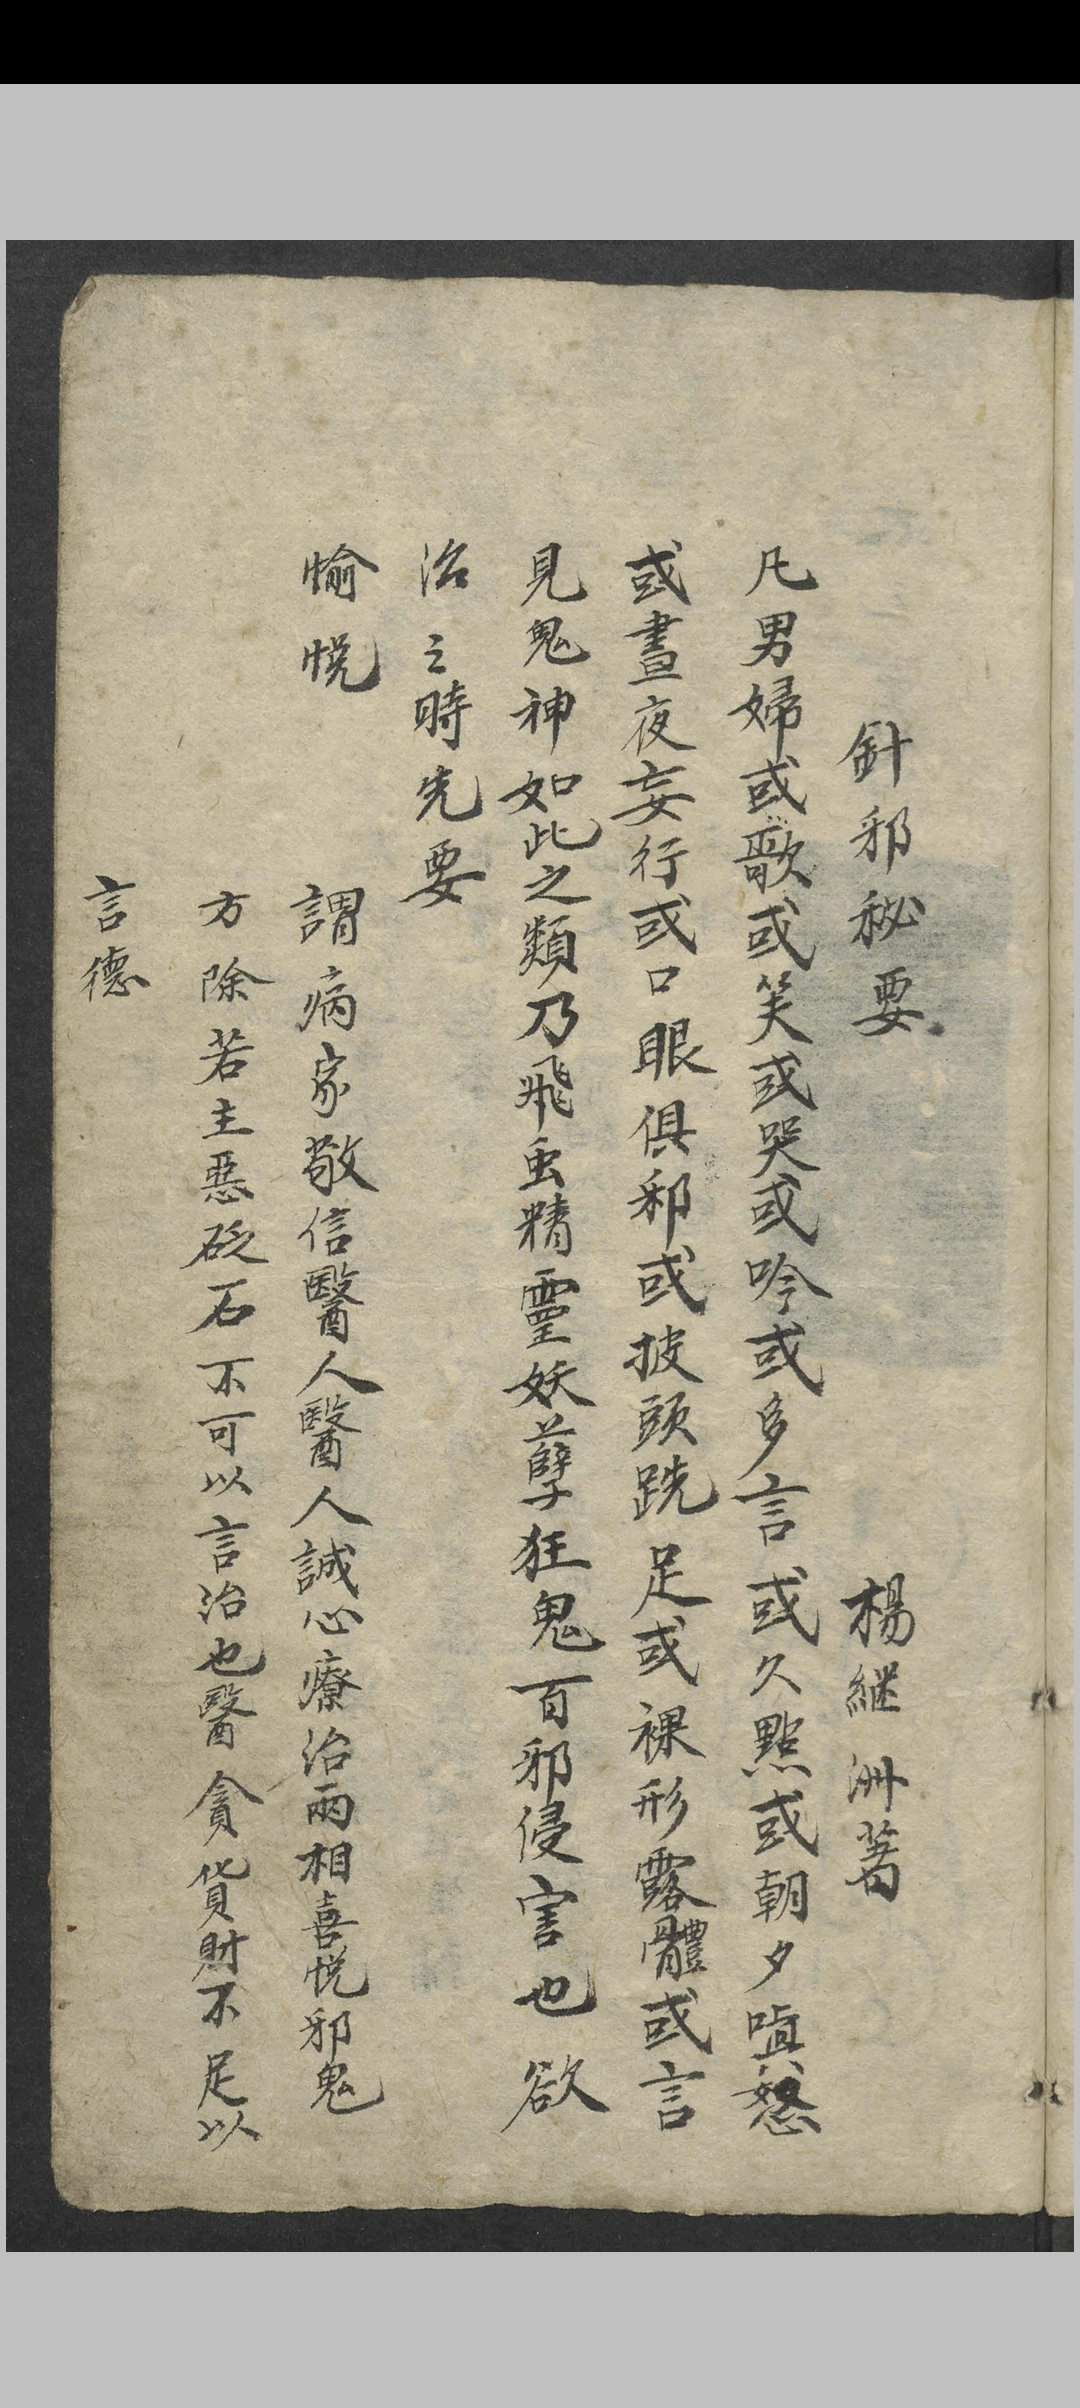 針邪秘要 楊継洲著
凡男婦或歌或笑或哭或吟或多言或久點或朝夕嗔怒
或晝夜妄行或口眼俱邪或披頭跣足或裸形露體或言
見鬼神如此之類乃飛虫精霊妖孽狂鬼百邪侵害也欲
治之時先要
愉悅 謂病家敬信醫人醫人誠心療治兩相喜悅邪鬼
方除若主惡砭石不可以言治也醫貪貨財不足以
言德